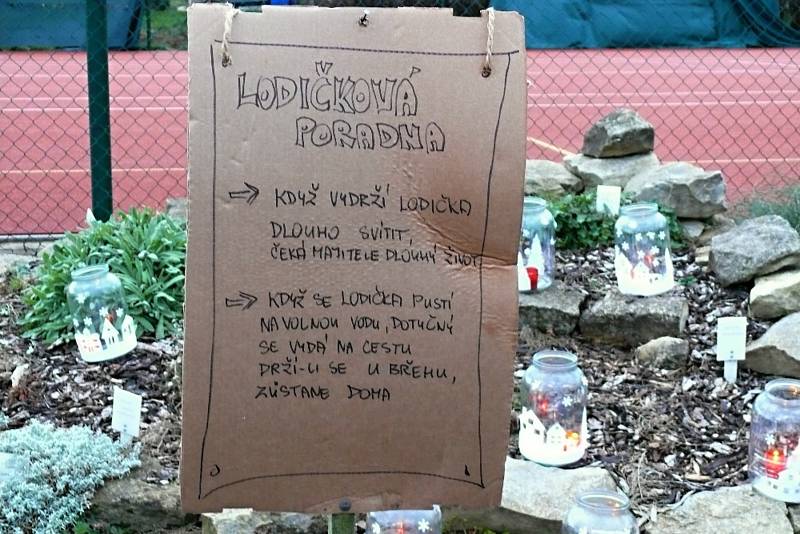 LODIČKOVÁ
PORADNA
⇒ KDYŽ VYDRŽÍ LODIČKA
DLOUHO SVÍTIT,
ČEKÁ MAJITELE DLOUHÝ ŽIVOT
⇒ KDYŽ SE LODIČKA PUSTÍ
NA VOLNOU VODU, DOTYČNÝ
SE VYDÁ NA CESTU
DRŽÍ-LI SE U BŘEHU,
ZŮSTANE DOMA